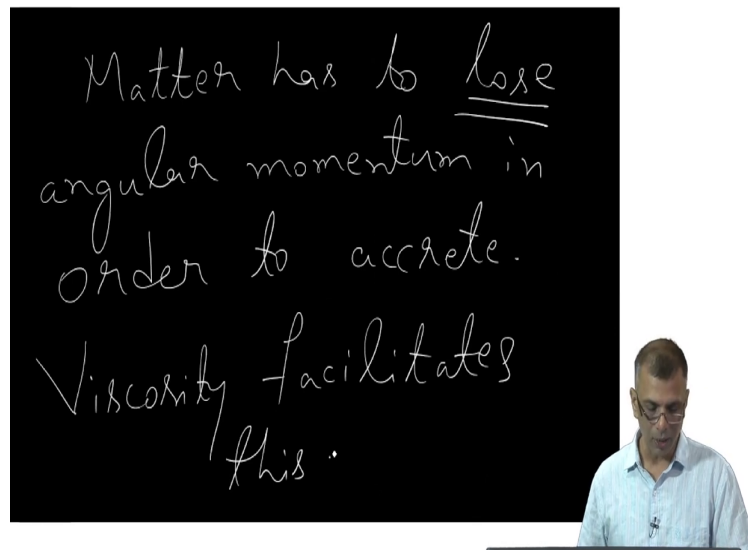 Matter has to lose
angular momentum in
order to accrete.
Viscosity facilitates
this.